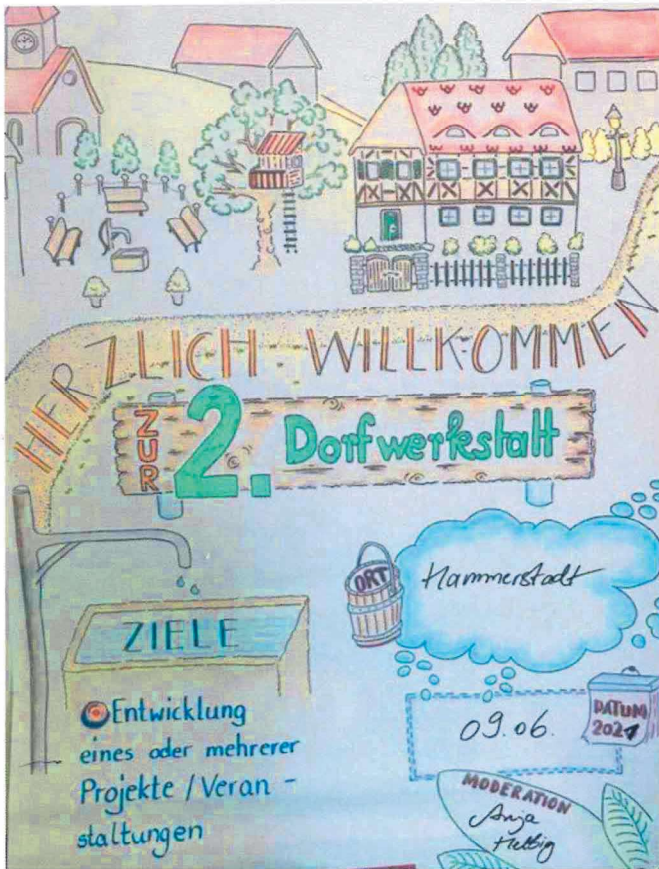 HERZLICH WILLKOMMEN
ZUR 2. Dorfwerkstatt
ORT
Hammerstadt
ZIELE
Entwicklung
eines oder mehrerer
Projekte / Veran-
staltungen
DATUM
2021
09.06.
MODERATION
Anja
Helbig